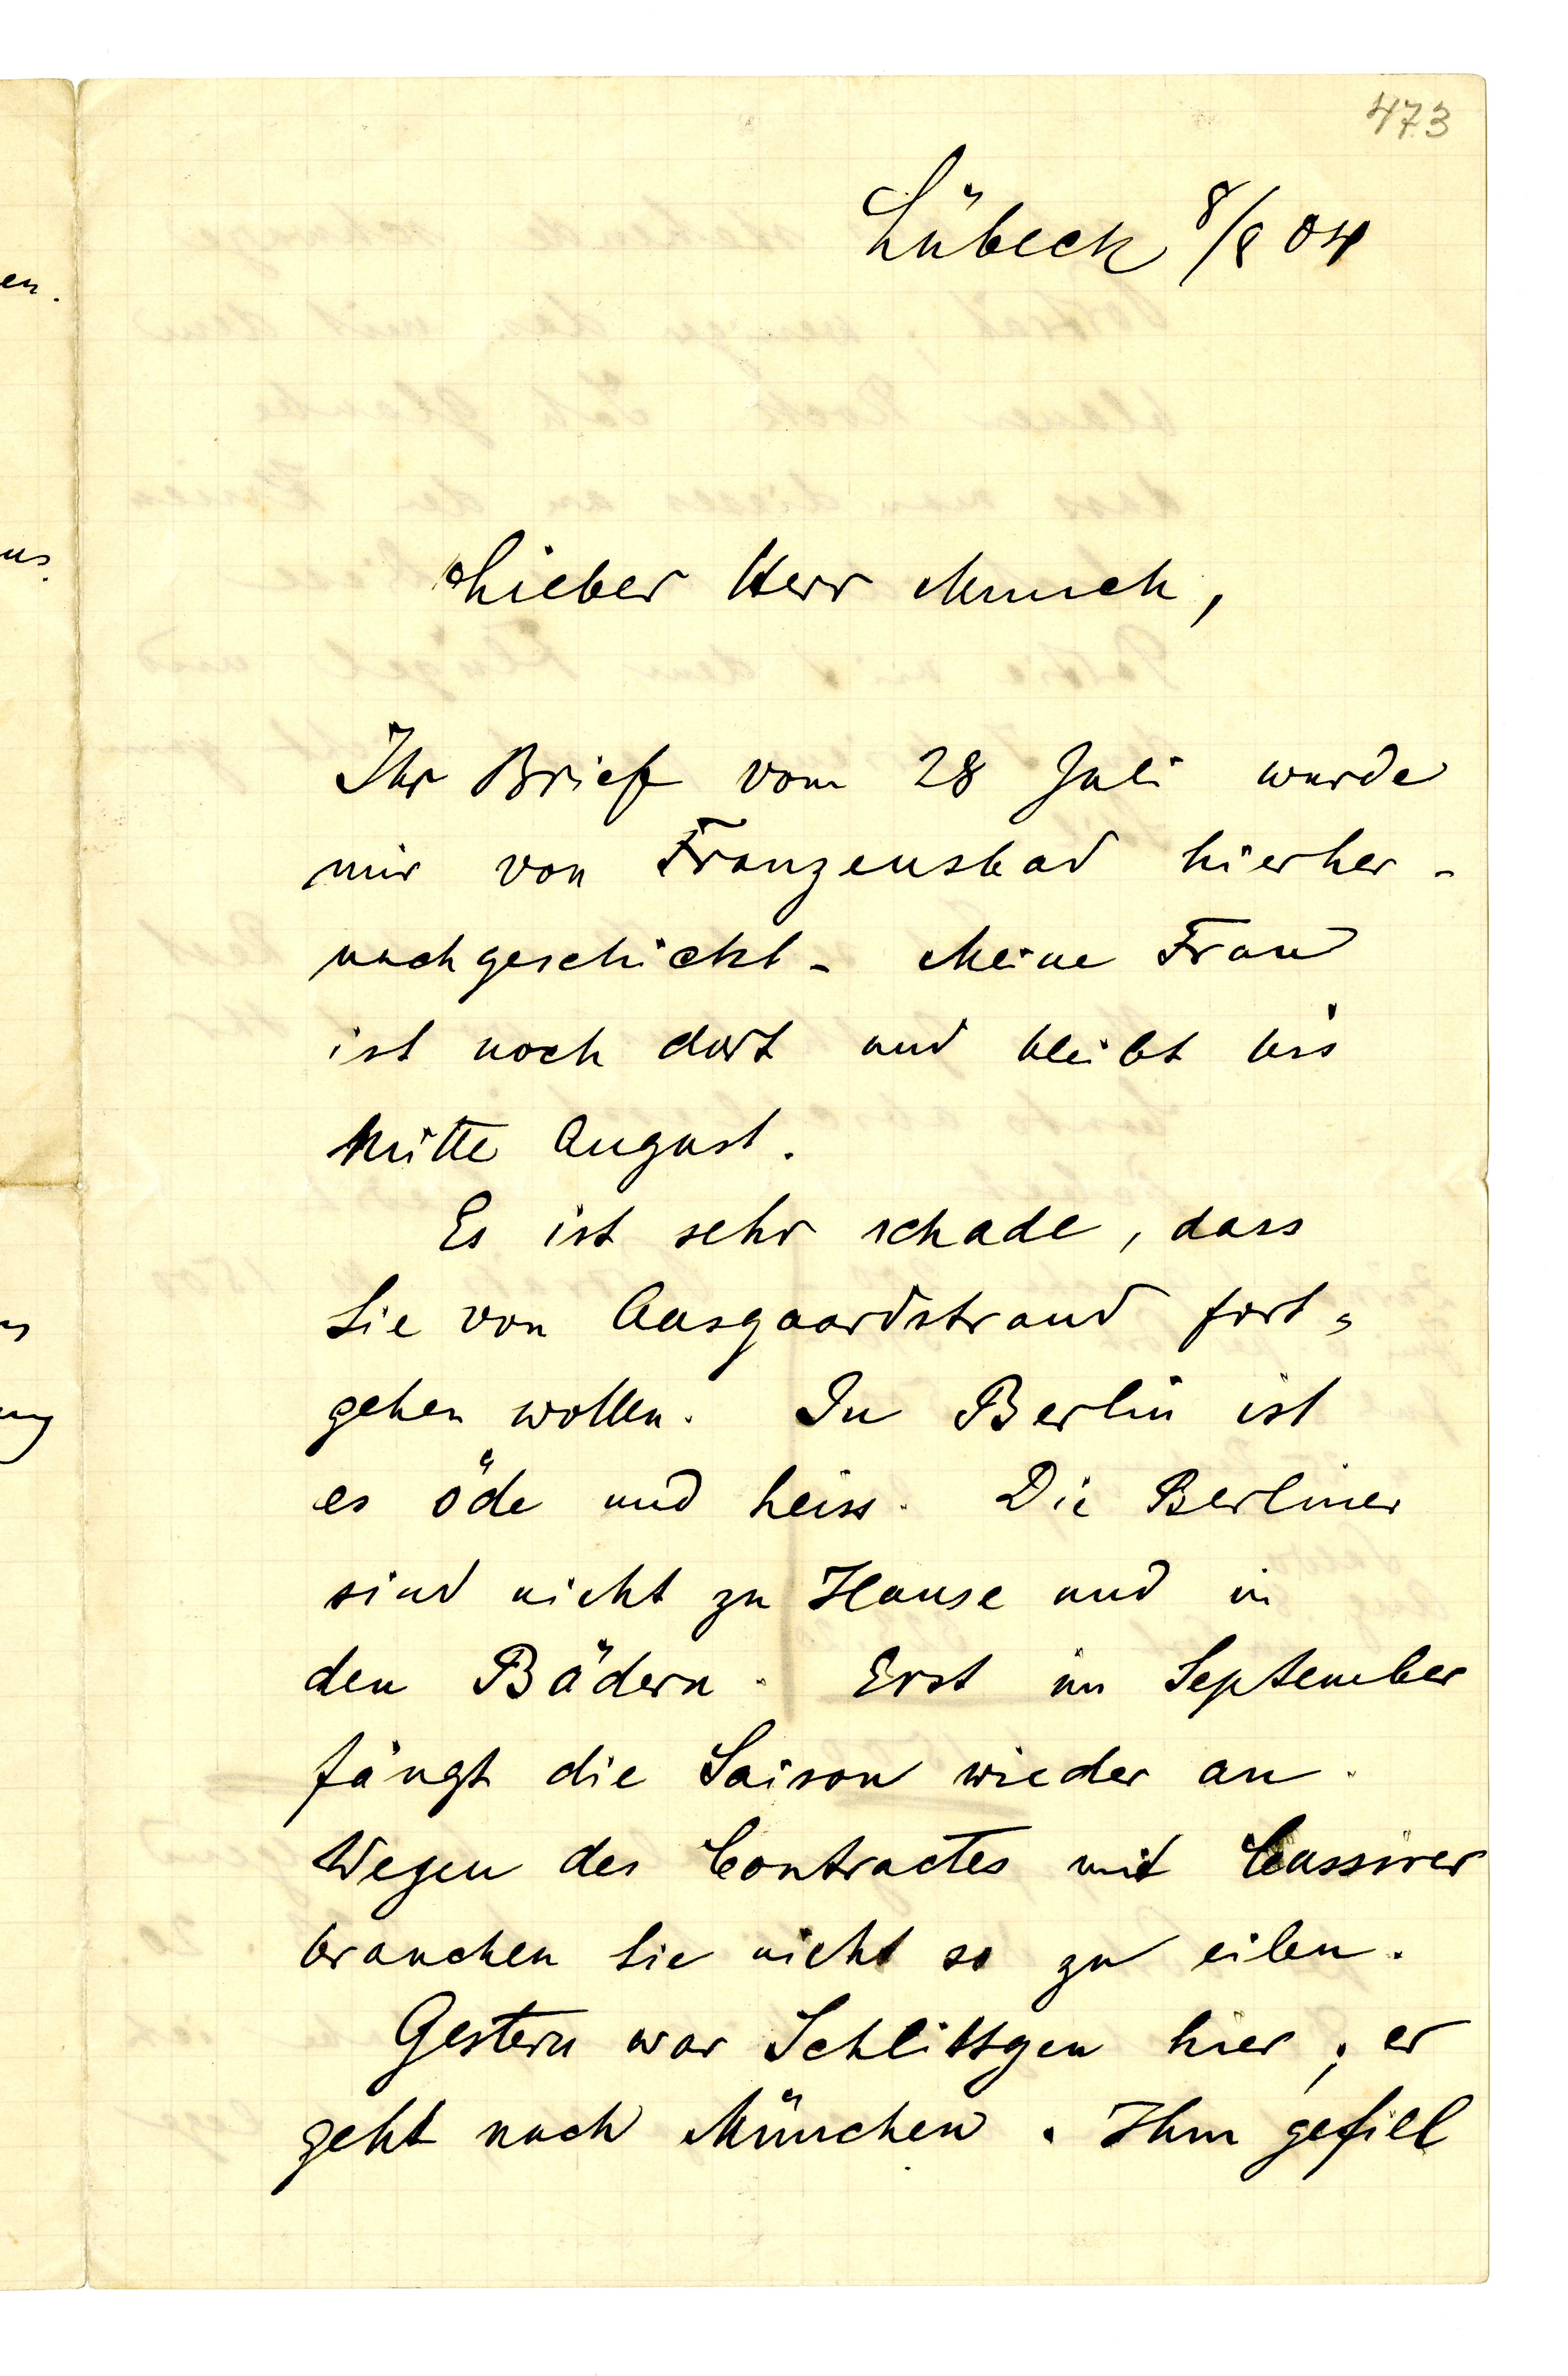 473
Lübeck 8/8 04
Lieber Herr Munch,
Ihr Brief vom 28 Juli wurde
mir von Franzensbad hierher-
nachgeschickt. Meine Frau
ist noch dort und bleibt bis
Mitte August.
Es ist sehr schade, dass
Sie von Aasgaardstrand fort-
gehen wollen. In Berlin ist
es öde und heiss. Die Berliner
sind nicht zu Hause und in
den Bädern. Erst im September
fängt die Saison wieder an.
Wegen des Contractes mit Cassirer
brauchen Sie nicht so zu eilen.
Gestern war Schlittgen hier; er
geht nach München. Ihm gefiel